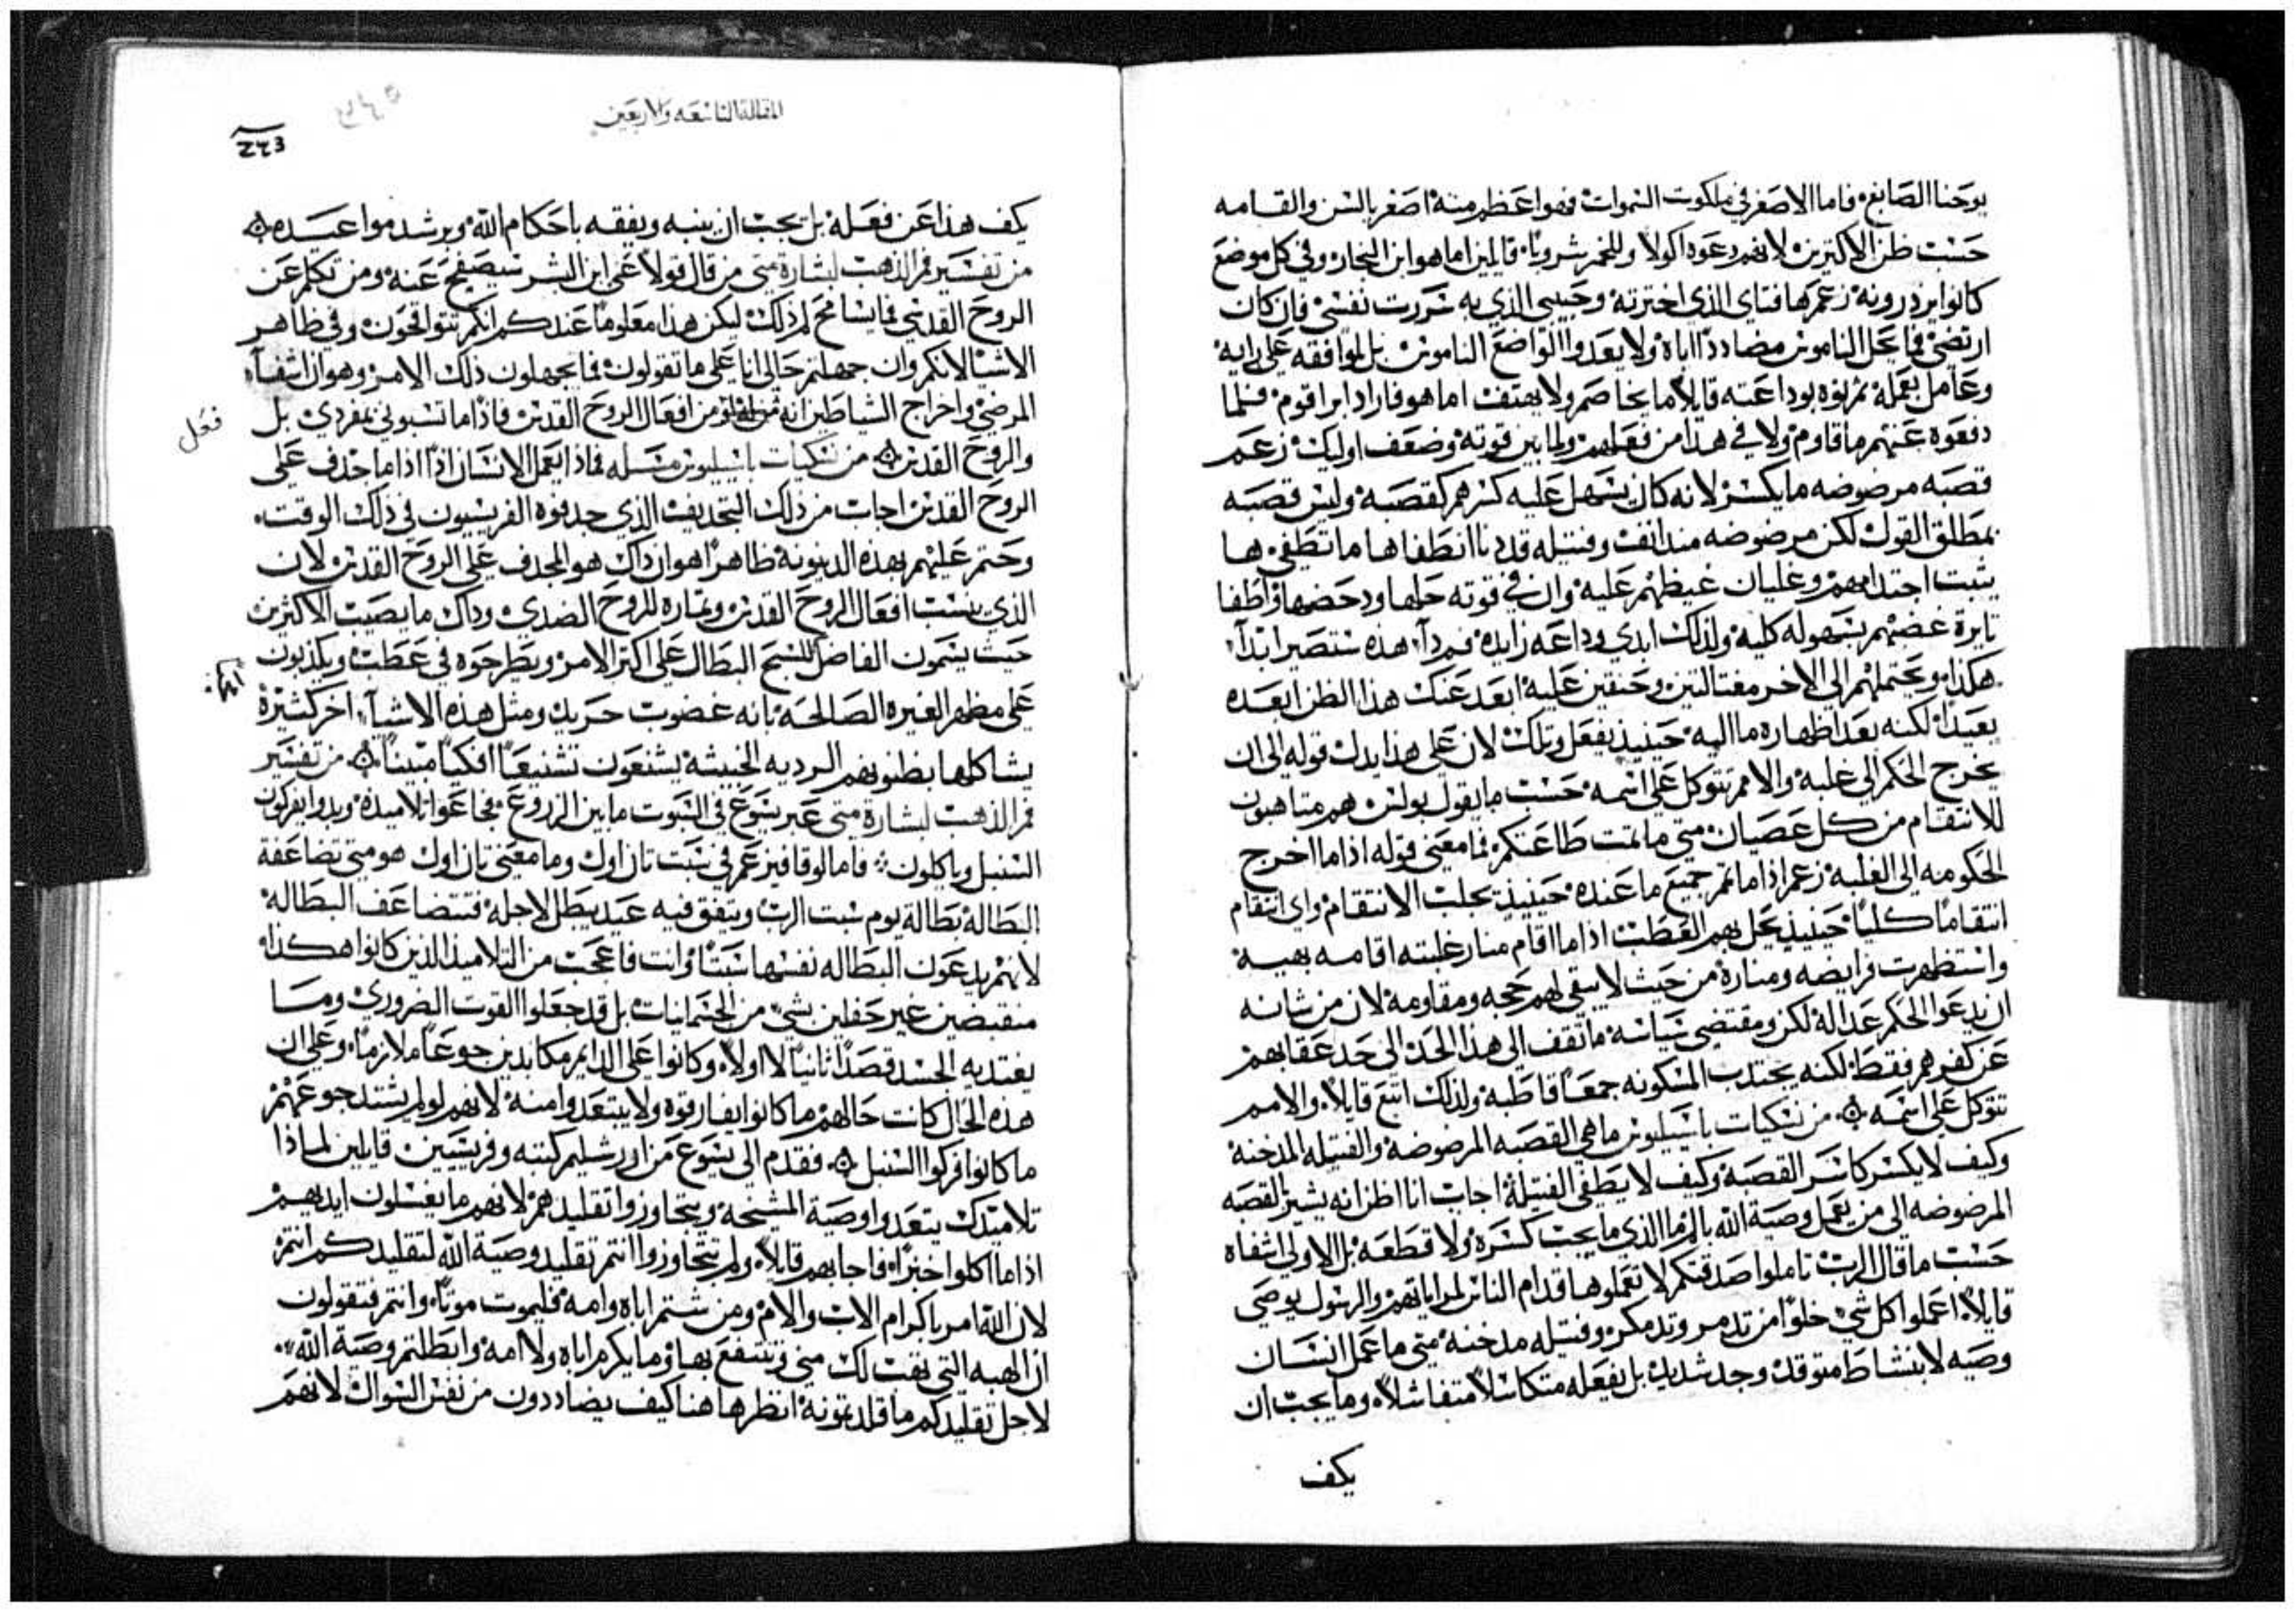 يوحنا الصابغ، فاما الاصغر في ملكوت السموات فهو اعظم منه اصغر بالسن والقامه
حسب ظن الاكثرين لانهم دعوه اكولا وللخمر شروبا، قايلين اما هو ابن النجار، وفي كل موضع
كانوا يزدرونه، زعم ها فتاي الذي اخترته وحبيبي الذي به سررت نفسي، فان كان
ارتضى فما يحل الناموس مضاددا اباه ولا يعدوا لواضع الناموس بل لموافقه على رايه
وعامل بعمله، ثم نوه بوداعته قايلا ما يخاصم ولا يهتف، اما هو فاراد ابراهم، فلما
دفعوه عنهم ما قاوم ولا في هذا من فعلهم، ولما بين قوته وضعف اوليك زعم
قصبه مرضوضه ما يكسر لانه كان يسهل عليه كسرهم كقصبه وليس قصبه
بمطلق القول لكن مرضوضه منذ انف وفتيله قد دنا انطفاها ما تطفي، ها
يثبت احتدامهم وغليان غيظهم عليه، وان في قوته حلها ودحضها واطفا
نايرة غضبهم بسهوله كليه، ولذلك ابدى وداعه زايده، فمرداً، هذه ستصير ابداً،
هكذا، ويحتملهم الى الاخر مغتالين وحنقين عليه، ابعد عنك هذا الظن ابعده
بعيداً، لكنه بعد اظهاره ما اليه حينيذ يفعل وتلك لان على هذا يدل قوله الى ان
يخرج الحكم الى غلبه والامم تتوكل على اسمه، حسب ما يقول بولس هم متاهبون
للانتقام من كل عصيان، متى ما تمت طاعتكم، فما معنى قوله اذا ما اخرج
الحكومه الى الغلبه، زعم اذا ما تم جميع ما عنده حينيذ يجلب الانتقام، واي انتقام
انتقاما كليا حينيذ يحل بهم العطب اذا ما اقام منار غلبته اقامه بهيه
واستظهرت فرايضه ومناره من حيث لا يبقى لهم حجه ومقاومه، لان من شانه
ان يدعوا الحكم عداله، لكن ومقتضى سياسه ما تقف الى هذا الحد، الى حد عقابهم
عن كفرهم فقط، لكنه يجتذب المسكونه جمعا قاطبه، ولذلك اتبع قايلا، والامم
تتوكل على اسمه ۞ من نسكيات باسيليوس ما هي القصبه المرضوضه والفتيله المدخنه
وكيف لا يكسر كاسر القصبه، وكيف لا يطفي الفتيلة، اجاب انا اظن انه يشير القصبه
المرضوضه الى من يعمل وصية الله بالم ما الذي ما يجب كسره ولا قطعه بل الاولى اشفاه
حسب ما قال الرب تاملوا صدقتكم لا تعملوها قدام الناس لمراياتهم، والرسول يوصي
قايلا، اعملوا كل شي خلوا من تذمر وتدمكر، وفتيله مدخنه متى ما عمل انسان
وصيه لا بنشاط متوقد وجد شديد، بل يفعله متكاسلا متفاشلا، وما يجب ان
يكف
المقالة التاسعه والاربعين
٢٤٥
٢٤٣
يكف هذا عن فعله بل يجب ان ينبه ويفقه باحكام الله ويرشد مواعيده ۞
من تفسير فم الذهب لبشارة متى من قال قولا على ابن البشر سيصفح عنه ومن تكلم عن
الروح القدس فما يسامح له ذلك، ليكن هذا معلوماً عندكم انكم تتواقحون، وفي ظاهر
الاشيا لانكم وان جهلتم حالي انا على ما تقولون فما تجهلون ذلك الامر، وهو ان اشفاء
المرضى واخراج الشياطين انه من افعال الروح القدس، فاذاً ما تسبوني بمفردي، بل
فعل
والروح القدس ۞ من نسكيات باسيليوس مسله فماذا يعمل الانسان اذا اذا ما جدف على
الروح القدس، اجاب من ذلك التجديف الذي جدفوه الفريسيون في ذلك الوقت،
وحتم عليهم بهذه الدينونة ظاهراً هو ان ذاك هو المجدف على الروح القدس، لان
الذي ينسب افعال الروح القدس وثماره للروح الضدي، وذاك ما يصيب الاكثرين
حيث يسمون الفاضل للسبح البطال على اكثر الامر، ويطرحوه في عطب، ويكذبون
على مظهر الغيره الصالحه بانه غضوب حريد، ومثل هذه الاشيآء اخر كثيرة
يشاكلها بظنونهم الرديه الخبيثه يشنعون تشنيعاً افكياً مبيناً ۞ من تفسير
فم الذهب لبشارة متى عبر يسوع في السبوت ما بين الزروع، فجاعوا تلاميذه، وبدوا يفركون
السنبل وياكلون، فاما لوقا فيزعم في سبت ثان اول، وما معنى ثان اول هو متى تضاعفة
البطاله، بطالة يوم سبت الرب، ويتفق فيه عيد يبطل لاجله، فتتضاعف البطاله،
لانهم يدعون البطاله نفسها سبتاً، وانت فاعجب من التلاميذ الذين كانوا هكذا
منقبضين غير حفلين بشي من الجسمانيات، بل قد جعلوا القوت الضروري، وما
يغتذيه الجسد قصداً ثانياً لا اولا، وكانوا على الدايم مكابدين جوعاً ملازماً، وعلى ان
هذه الحال كانت حالهم، ما كانوا يفارقوه ولا يبتعدوا منه، لانهم لو لم يشتد جوعهم
ما كانوا فركوا السنبل ۞ فقدم الى يسوع من اورشليم كتبه وفريسيين قايلين لماذا
تلاميذك يتعدوا وصية المشيخة ويتجاوزوا تقليدهم، لانهم ما يغسلون ايديهم
اذا ما اكلوا خبزاً، فاجابهم قايلا، ولم تتجاوزوا انتم تقليد وصية الله لتقليدكم انتم
لان الله امر باكرام الاب والام، ومن شتم اباه وامه، فليموت موتاً، وانتم فتقولون
ان الهبه التي تهب لك مني وتنتفع بها، وما يكرم اباه ولا امه، وابطلتم وصية الله،
لاجل تقليدكم ما قلدتمونه، انظر ها هنا كيف يضاددون من نفس السوال لانهم